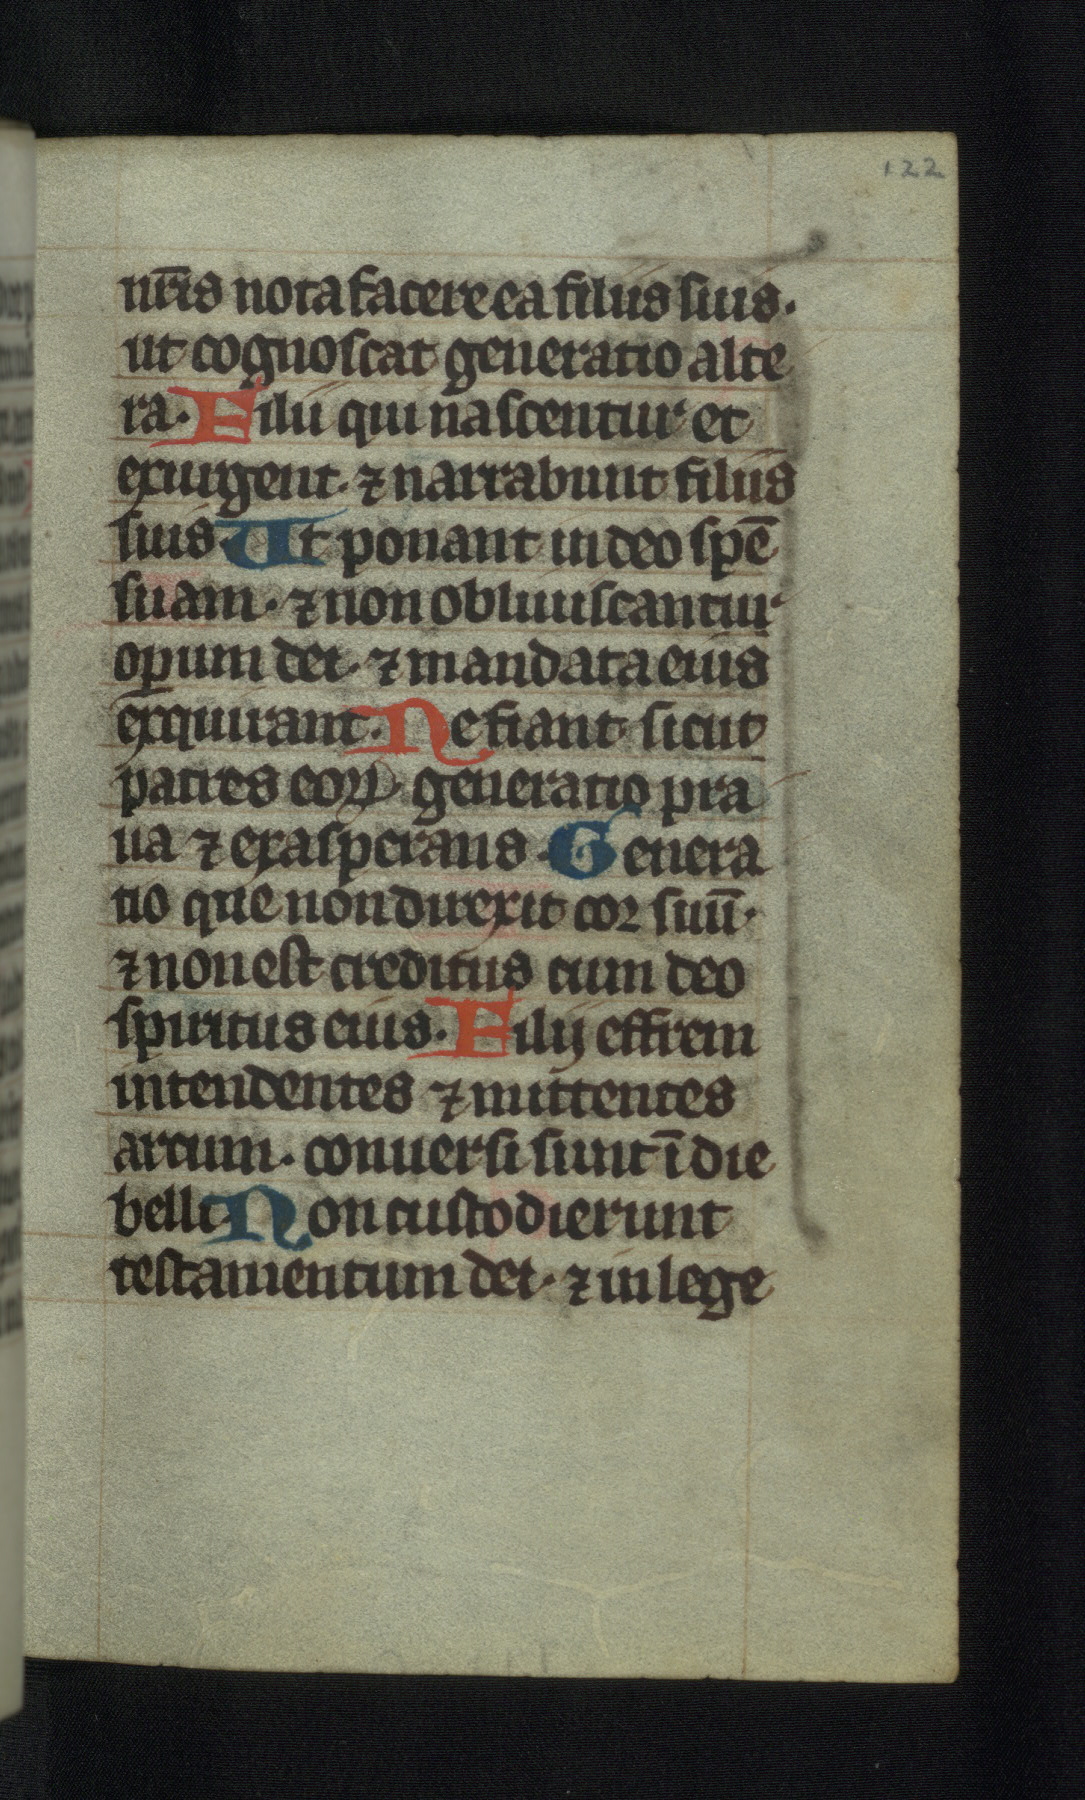 122
nr̄is nota facere ea filiis suis·
ut cognoscat generatio alte
ra· Filii qui nascentur et
exurgent· ⁊ narrabunt filiis
suis· Ut ponant in deo spē
suam· ⁊ non obliuiscantur
oꝑum dei· ⁊ mandata eius
exquirant· Ne fiant sicut
patres eoꝝ generatio pra
ua ⁊ exasperans· Genera
tio que non direxit cor suū·
⁊ non est creditus cum deo
spiritus eius· Filij effrem
intendentes ⁊ mittentes
arcum· conuersi sunt ī die
belli· Non custodierunt
testamentum dei· ⁊ in lege